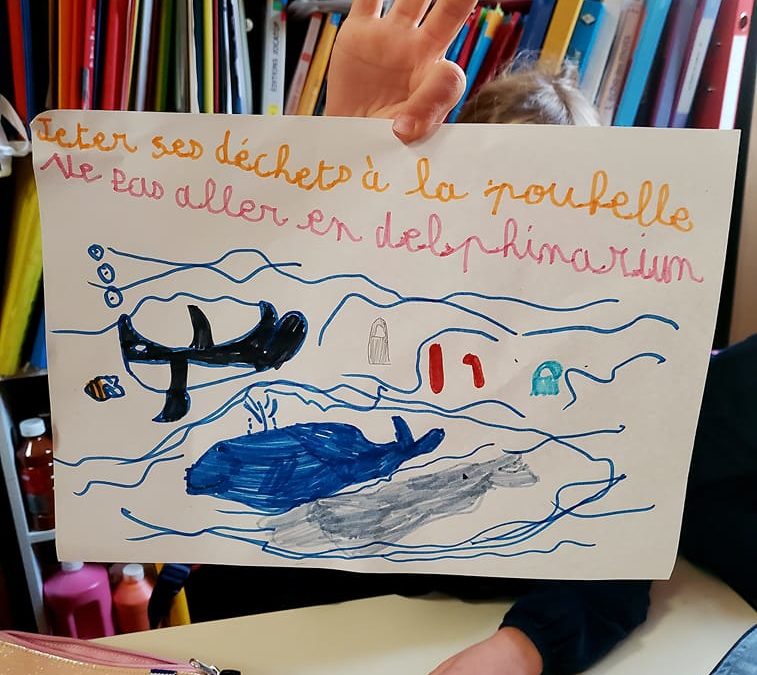 EDITIONS
EDITIONS
Jeter ses déchets à la poubelle
Ne pas aller en delphinarium